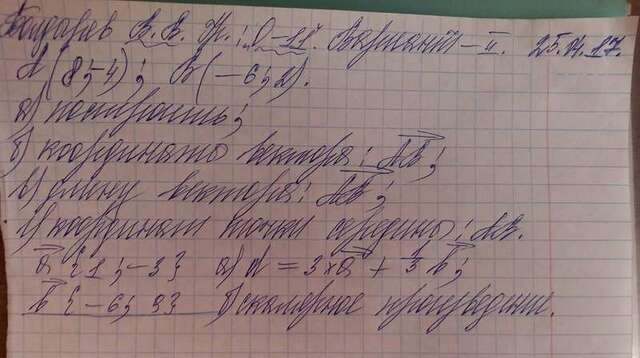 Бондарев В. В. Н.; О-11. Вариант – II. 25.04.17.
A (8; -4); B (-6; 2).
а) построить;
б) координаты вектора: AB;
в) длину вектора: AB;
г) координаты точки середины: AB.
a {1; -3} а) d = 3×a + 1/3 b;
b {-6; 9} б) скалярное произведение.